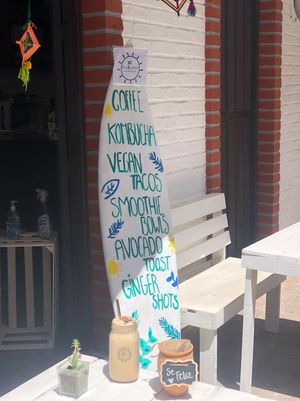 COFFEE
KOMBUCHA
VEGAN
TACOS
SMOOTHIE
BOWLS
AVOCADO
TOAST
GINGER
SHOTS
Se
Feliz